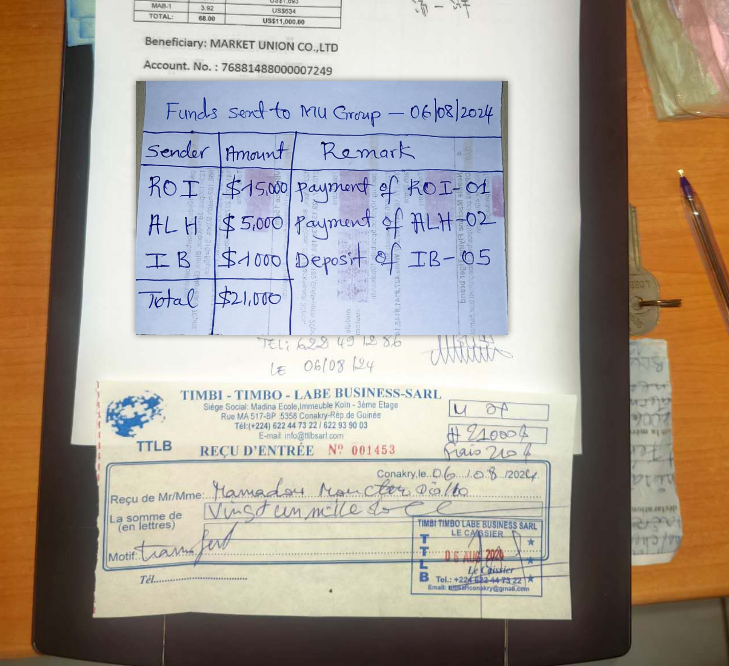 MAB-1 3.92 US$634
TOTAL: 68.00 US$11,000.00
Beneficiary: MARKET UNION CO.,LTD
Account. No. : 76881488000007249
Funds sent to MU Group – 06/08/2024
Sender Amount Remark
ROI $15,000 payment of ROI-01
ALH $5,000 Payment of ALH-02
IB $1000 Deposit of IB-05
Total $21,000
TEL: 628 49 12 86
LE 06/08/24
TIMBI - TIMBO - LABE BUSINESS-SARL
Siège Social: Madina Ecole,Immeuble Koin - 3ème Etage
Rue MA 517-BP :5358 Conakry-Rép.de Guinée
Tél:(+224) 622 44 73 22 / 622 93 90 03
E-mail: info@ttlbsarl.com
TTLB
REÇU D'ENTRÉE Nº 001453
21000$
frais 210$
Conakry,le..06../..08../2024
Reçu de Mr/Mme: Mamadou Moucter Diallo
La somme de
(en lettres)
Vingt un mille
Motif: transfert
Tél.
TIMBI TIMBO LABE BUSINESS SARL
LE CAISSIER
TTLB
06 AUG 2024
Le Caissier
Tel.: +224 622 44 73 22